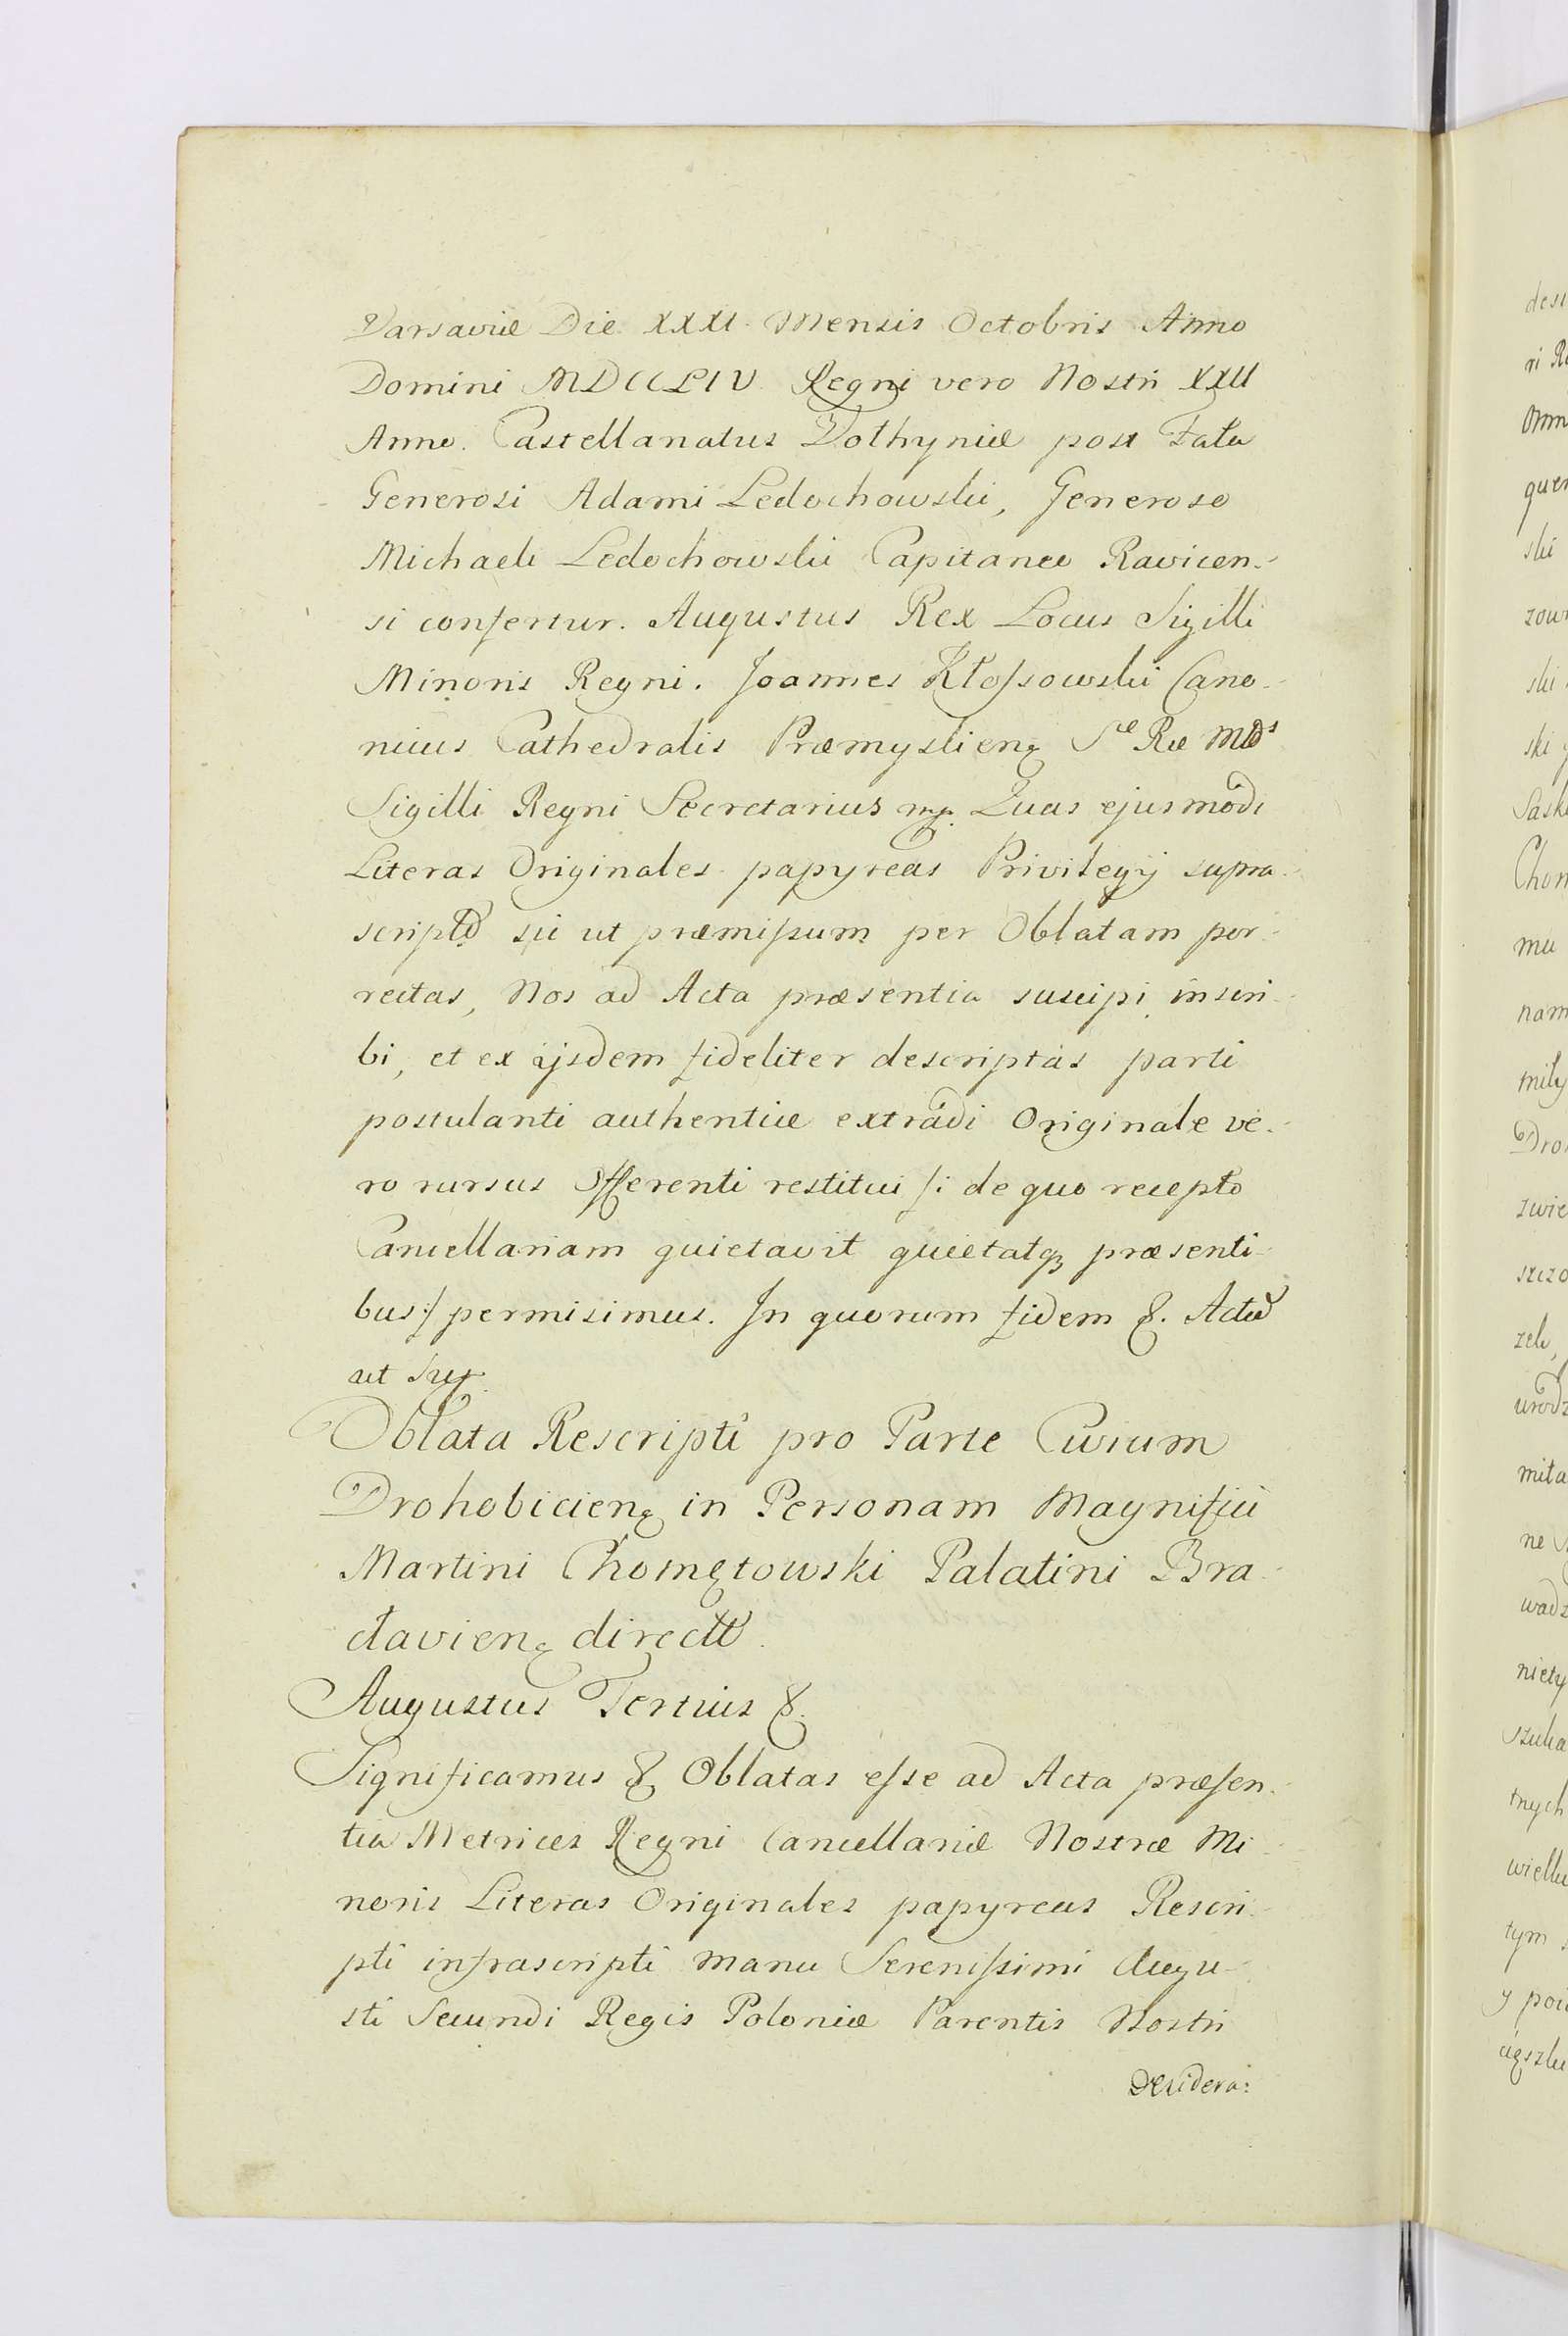 Varsaviæ Die XXXI Mensis Octobris Anno
Domini MDCCLIV. Regni vero Nostri XXII
Anno. Castellanatus Volhyniæ post Fata
Generosi Adami Ledochowski, Generoso
Michaeli Ledochowski Capitaneo Ravicen-
si confertur. Augustus Rex Locus Sigilli
Minoris Regni. Joannes Kłoſsowski Cano-
nicus Cathedralis Præmysliens Sæ Ræ Mtis
Sigilli Regni Secretarius mp. Quas ejusmodi
Literas Originales papyreas Privilegij supra-
scripti sic ut præmiſsum per Oblatam por-
rectas, Nos ad Acta præsentia suscipi, inscri-
bi, et ex ijsdem fideliter descriptas parti
postulanti authentice extradi Originale ve-
ro rursus Offerenti restitui /: de quo recepto
Cancellariam quietavit quietatq3 præsenti-
bus :/ permisimus. In quorum fidem &. Actum
ut Sup.
Oblata Rescripti pro Parte Civium
Drohobiciens in Personam Magnifici
Martini Chomętowski Palatini Bra-
claviens directi.
Augustus Tertius &.
Significamus & Oblatas eſse ad Acta præſen-
tia Metrices Regni Cancellariæ Nostræ Mi-
noris Literas Originales papyreas Rescri-
pti infrascripti manu Sereniſsimi Augu-
sti Secundi Regis Poloniæ Parentis Nostri
desidera: